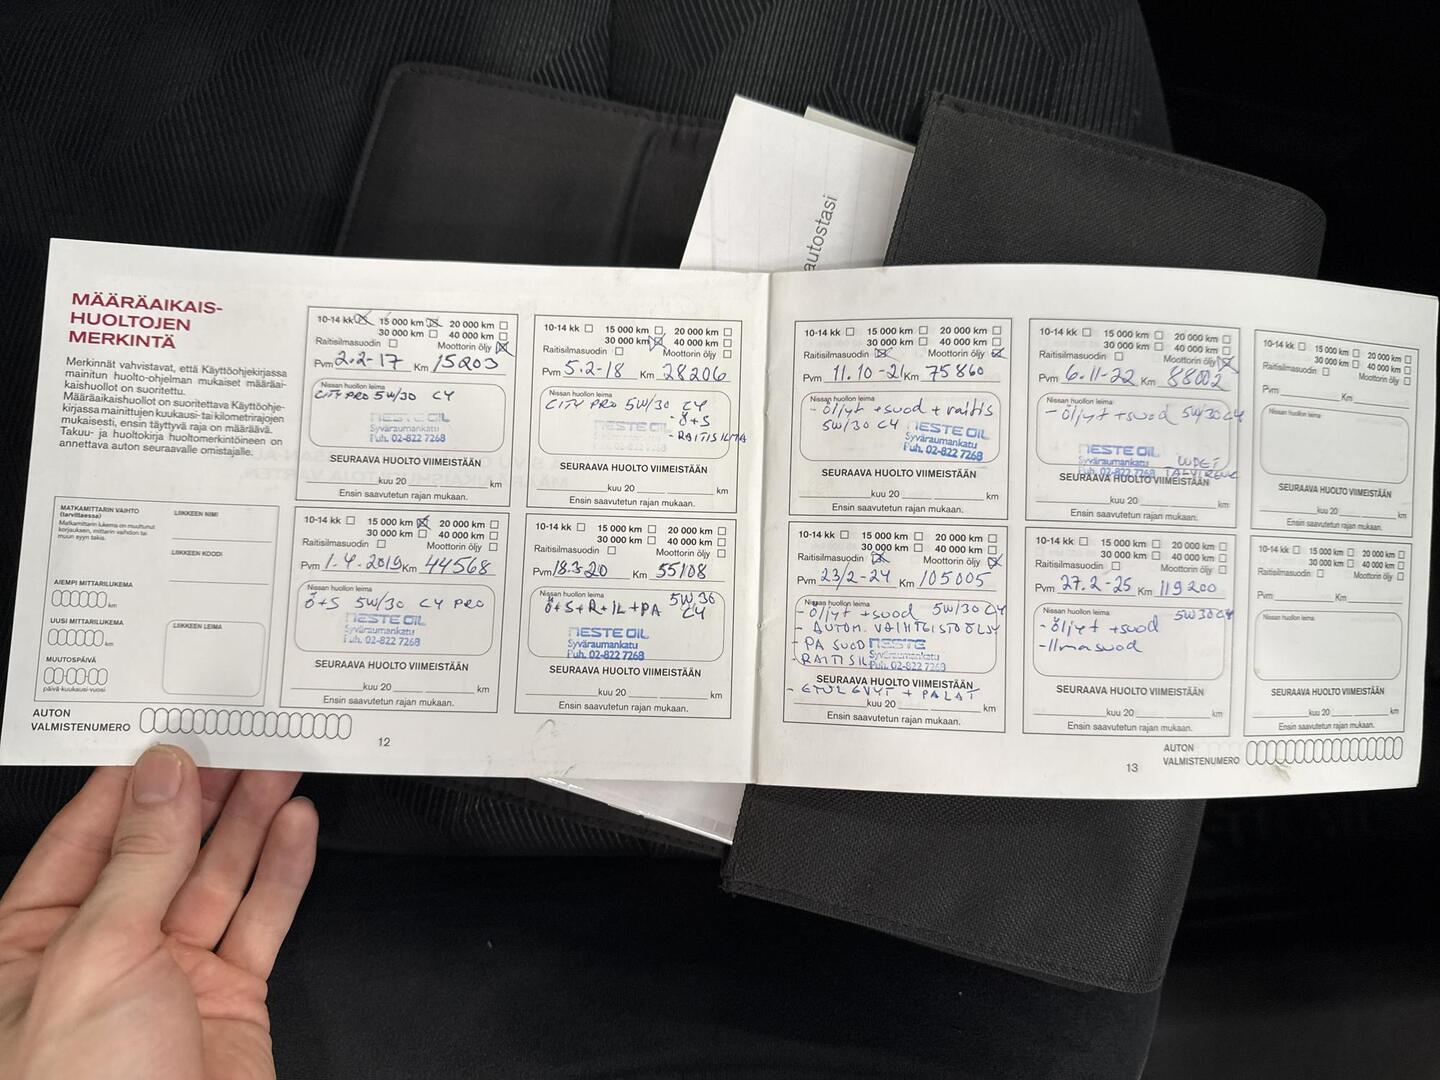 autostasi
MÄÄRÄAIKAIS-
HUOLTOJEN
MERKINTÄ
Merkinnät vahvistavat, että Käyttöohjekirjassa
mainitun huolto-ohjelman mukaiset määräai-
kaishuollot on suoritettu.
Määräaikaishuollot on suoritettava Käyttöohje-
kirjassa mainittujen kuukausi- tai kilometrirajojen
mukaisesti, ensin täyttyvä raja on määräävä.
Takuu- ja huoltokirja huoltomerkintöineen on
annettava auton seuraavalle omistajalle.
MATKAMITTARIN VAIHTO
(tarvittaessa)
Matkamittarin lukema on muuttunut
korjauksen, mittarin vaihdon tai
muun syyn takia.
AIEMPI MITTARILUKEMA
km
UUSI MITTARILUKEMA
km
MUUTOSPÄIVÄ
päivä-kuukausi-vuosi
LIIKKEEN NIMI
LIIKKEEN KOODI
LIIKKEEN LEIMA
AUTON
VALMISTENUMERO
10-14 kk 15 000 km 20 000 km
30 000 km 40 000 km
Raitisilmasuodin Moottorin öljy
Pvm 2.2-17 Km 15203
Nissan huollon leima
CITY PRO 5W/30 C4
NESTE OIL
Syväraumankatu
Puh. 02-822 7268
SEURAAVA HUOLTO VIIMEISTÄÄN
kuu 20 km
Ensin saavutetun rajan mukaan.
10-14 kk 15 000 km 20 000 km
30 000 km 40 000 km
Raitisilmasuodin Moottorin öljy
Pvm 5.2-18 Km 28206
Nissan huollon leima
CITY PRO 5W/30 C4
- Ö+S
- RAITISILMA
NESTE OIL
Syväraumankatu
Puh. 02-822 7268
SEURAAVA HUOLTO VIIMEISTÄÄN
kuu 20 km
Ensin saavutetun rajan mukaan.
10-14 kk 15 000 km 20 000 km
30 000 km 40 000 km
Raitisilmasuodin Moottorin öljy
Pvm 1-4.2019 Km 44568
Nissan huollon leima
Ö+S 5W/30 C4 PRO
NESTE OIL
Syväraumankatu
Puh. 02-822 7268
SEURAAVA HUOLTO VIIMEISTÄÄN
kuu 20 km
Ensin saavutetun rajan mukaan.
10-14 kk 15 000 km 20 000 km
30 000 km 40 000 km
Raitisilmasuodin Moottorin öljy
Pvm 18.3-20 Km 55108
Nissan huollon leima
5W30
Ö+S+R+IL+PA C4
NESTE OIL
Syväraumankatu
Puh. 02-822 7268
SEURAAVA HUOLTO VIIMEISTÄÄN
kuu 20 km
Ensin saavutetun rajan mukaan.
12
10-14 kk 15 000 km 20 000 km
30 000 km 40 000 km
Raitisilmasuodin Moottorin öljy
Pvm 11.10-21 Km 75860
Nissan huollon leima
- Öljyt +suod + raitis
5W/30 C4
NESTE OIL
Syväraumankatu
Puh. 02-822 7268
SEURAAVA HUOLTO VIIMEISTÄÄN
kuu 20 km
Ensin saavutetun rajan mukaan.
10-14 kk 15 000 km 20 000 km
30 000 km 40 000 km
Raitisilmasuodin Moottorin öljy
Pvm 6.11-22 Km 88002
Nissan huollon leima
- Öljyt +suod 5W/30 C4
NESTE OIL
Syväraumankatu
Puh. 02-822 7268
SEURAAVA HUOLTO VIIMEISTÄÄN
kuu 20 km
Ensin saavutetun rajan mukaan.
10-14 kk 15 000 km 20 000 km
30 000 km 40 000 km
Raitisilmasuodin Moottorin öljy
Pvm Km
Nissan huollon leima
SEURAAVA HUOLTO VIIMEISTÄÄN
kuu 20 km
Ensin saavutetun rajan mukaan.
10-14 kk 15 000 km 20 000 km
30 000 km 40 000 km
Raitisilmasuodin Moottorin öljy
Pvm 23/2-24 Km 105005
Nissan huollon leima
- Öljyt +suod 5W/30 C4
- AUTOM. VAIHTEISTOÖLJY
- PA SUOD
- RAITISIL
NESTE
Syväraumankatu
Puh. 02-822 7268
SEURAAVA HUOLTO VIIMEISTÄÄN
- ETULEVYT + PALAT
kuu 20 km
Ensin saavutetun rajan mukaan.
10-14 kk 15 000 km 20 000 km
30 000 km 40 000 km
Raitisilmasuodin Moottorin öljy
Pvm 27.2-25 Km 119200
Nissan huollon leima
5W30C4
- Öljyt +suod
- Ilmasuod
SEURAAVA HUOLTO VIIMEISTÄÄN
kuu 20 km
Ensin saavutetun rajan mukaan.
10-14 kk 15 000 km 20 000 km
30 000 km 40 000 km
Raitisilmasuodin Moottorin öljy
Pvm Km
Nissan huollon leima
SEURAAVA HUOLTO VIIMEISTÄÄN
kuu 20 km
Ensin saavutetun rajan mukaan.
13
AUTON
VALMISTENUMERO